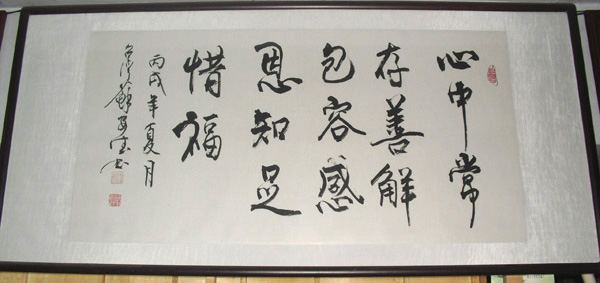 心中常
存善解
包容感
恩知足
惜福
丙戌年夏月